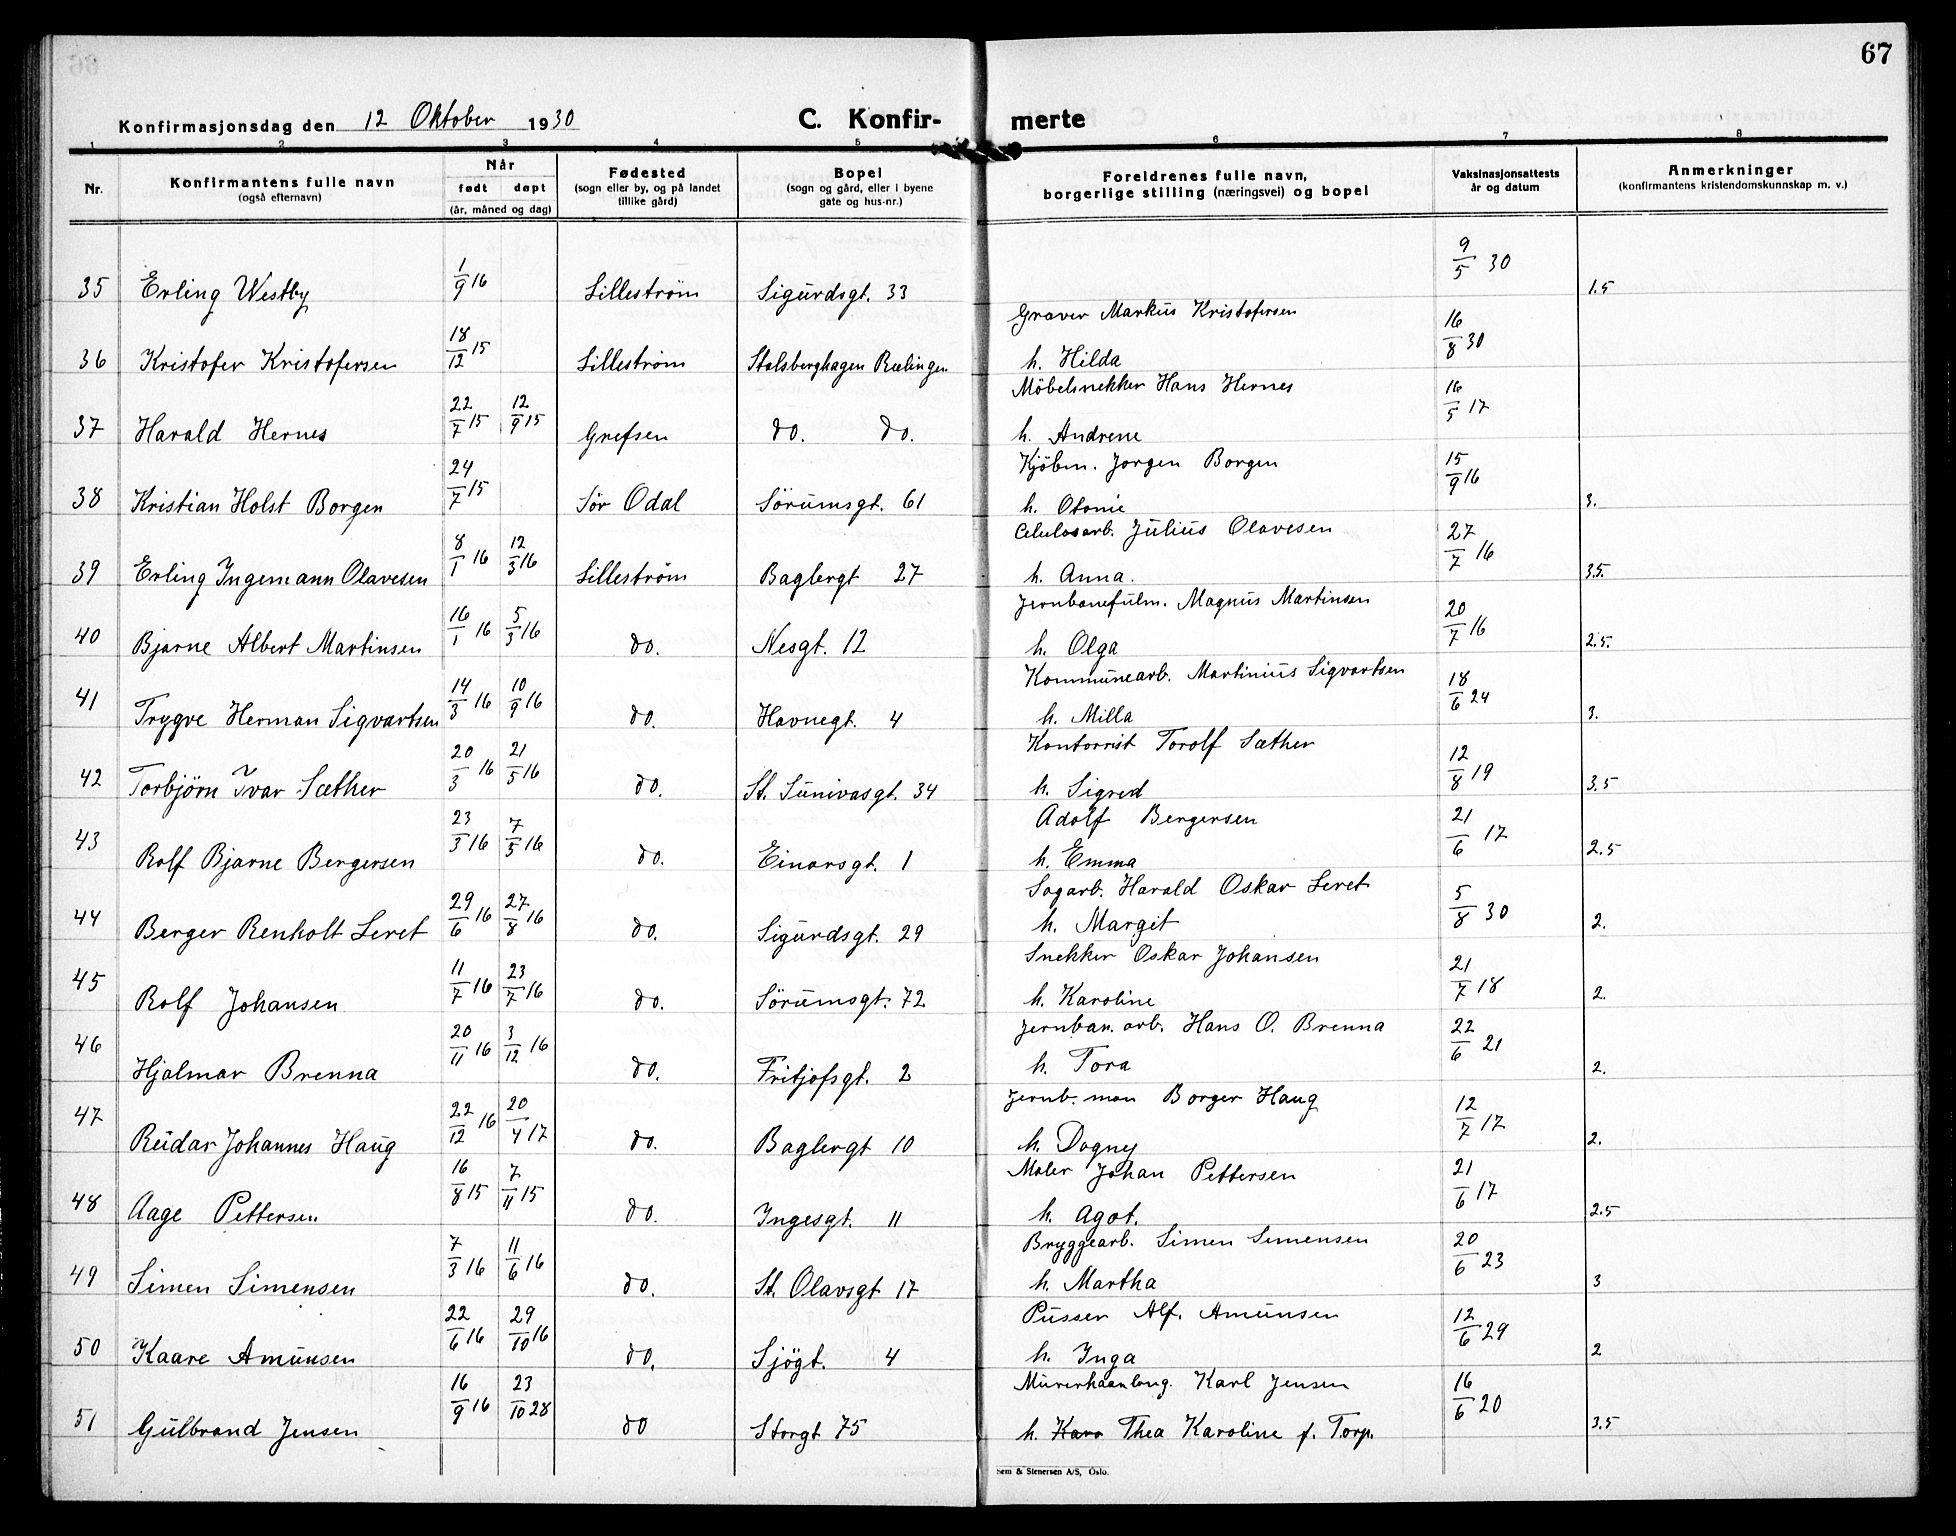 67
Konfirmasjonsdag den 12 Oktober 1930 C. Konfir- merte
1 2 3 4 5 6 7 8
Nr. Konfirmantens fulle navn (også efternavn) Når født døpt (år, måned og dag) Fødested (sogn eller by, og på landet tillike gård) Bopel (sogn og gård, eller i byene gate og hus-nr.) Foreldrenes fulle navn, borgerlige stilling (næringsvei) og bopel Vaksinasjonsattests år og datum Anmerkninger (konfirmantens kristendomskunnskap m. v.)
35 Erling Westby 1/9 16 Lilleström Sigurdsgt. 33 9/5 30 1.5
Graver Markus Kristofersen
36 Kristofer Kristofersen 18/12 15 Lilleström Stalsberghagen Rælingen h. Hilda 16/8 30
Möbelsnekker Hans Hernes
37 Harald Hernes 22/7 15 12/9 15 Grefsen do. do. h. Andrene 16/5 17
Kjöbm. Jorgen Borgen
38 Kristian Holst Borgen 24/7 15 Sör Odal Sörumsgt. 61 h. Otonie 15/9 16 3.
Celulosarb. Julius Olavesen
39 Erling Ingemann Olavesen 8/1 16 12/3 16 Lilleström Baglergt 27 h. Anna. 27/7 16 3.5.
Jernbanefulm. Magnus Martinsen
40 Bjarne Albert Martinsen 16/1 16 5/3 16 do. Nesgt. 12 h. Olga 20/7 16 2.5.
Kommunearb. Martinius Sigvartsen
41 Trygve Herman Sigvartsen 14/3 16 10/9 16 do. Havnegt. 4 h. Milla 18/6 24 3.
Kontorrist Torolf Sæther
42 Torbjörn Ivar Sæther 20/3 16 21/5 16 do. St. Sunivasgt. 34 h. Sigred 12/8 19 3.5
Adolf Bergersen
43 Rolf Bjarne Bergersen 23/3 16 7/5 16 do. Einarsgt. 1 h. Emma 21/6 17 2.5
Sagarb. Harald Oskar Leret
44 Berger Renholt Leret 29/6 16 27/8 16 do. Sigurdsgt. 29 h. Margit 5/8 30 2.
Snekker Oskar Johansen
45 Rolf Johansen 11/7 16 23/7 16 do. Sörumsgt. 72 h. Karoline 21/7 18 2.
Jernban. arb. Hans O. Brenna
46 Hjalmar Brenna 20/11 16 3/12 16 do. Fritjofsgt. 2 h. Tora 22/6 21 2.
Jernb. man Borger Haug
47 Reidar Johannes Haug 22/12 16 20/4 17 do. Baglergt 10 h. Dagny 12/7 17 2.
Maler Johan Pettersen
48 Aage Pettersen 16/8 15 7/11 15 do. Ingesgt. 11 h. Agot. 21/6 17 2.5
Bryggearb. Simen Simensen
49 Simen Simensen 7/3 16 11/6 16 do. St. Olavsgt 17 h. Martha 20/6 23 3
Pusser Alf. Amunsen
50 Kaare Amunsen 22/6 16 29/10 16 do. Sjögt. 4 h. Inga 12/6 29 2
Murerhaanlang. Karl Jensen
51 Gulbrand Jensen 16/9 16 23/10 28 do Storgt 75 h. Karo Thea Karoline f. Torp. 16/6 20 3.5
Sem & Stenersen A/S, Oslo.